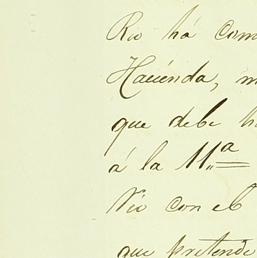 Rio há com
Hacienda, m
que debe h
á la 11.ª
Nio con el
que pretende